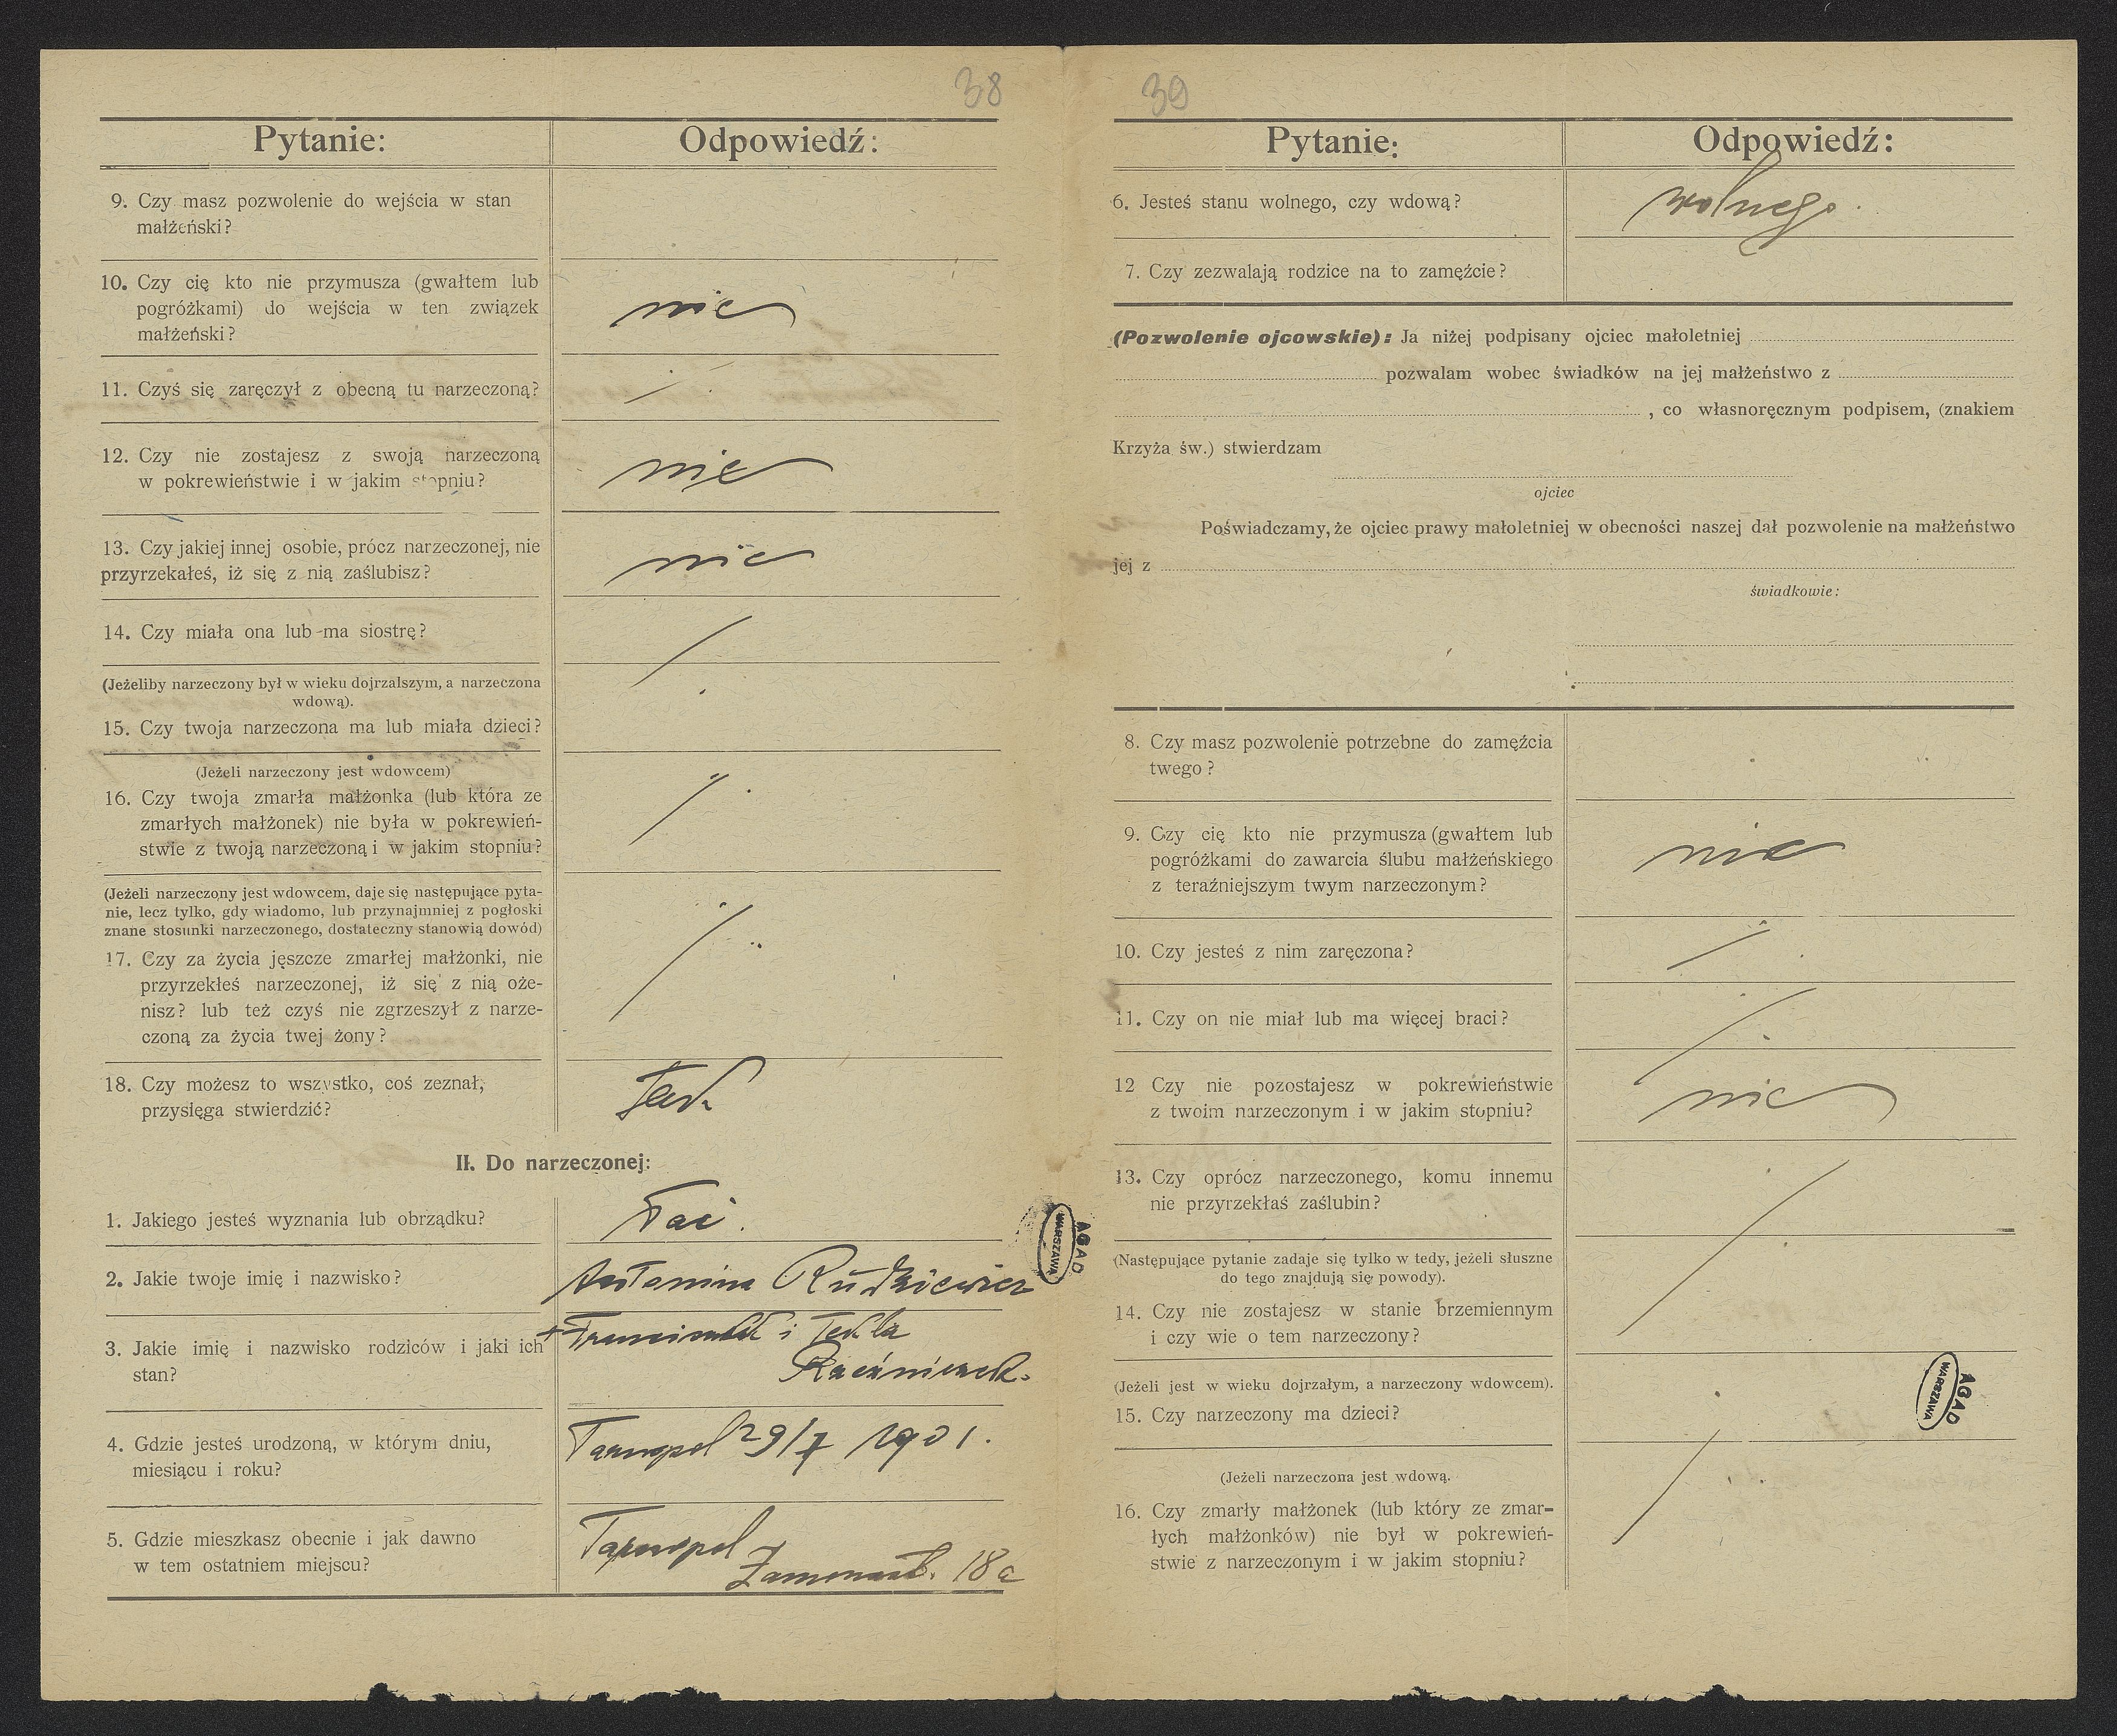 38
Pytanie:
Odpowiedź:
9. Czy masz pozwolenie do wejścia w stan
małżeński?
10. Czy cię kto nie przymusza (gwałtem lub
pogróżkami) do wejścia w ten związek
małżeński?
nie
11. Czyś się zaręczył z obecną tu narzeczoną?
12. Czy nie zostajesz z swoją narzeczoną
w pokrewieństwie i w jakim stopniu?
nie
13. Czy jakiej innej osobie, prócz narzeczonej, nie
przyrzekałeś, iż się z nią zaślubisz?
nie
14. Czy miała ona lub ma siostrę?
(Jeżeliby narzeczony był w wieku dojrzalszym, a narzeczona
wdową).
15. Czy twoja narzeczona ma lub miała dzieci?
(Jeżeli narzeczony jest wdowcem)
16. Czy twoja zmarła małżonka (lub która ze
zmarłych małżonek) nie była w pokrewień-
stwie z twoją narzeczoną i w jakim stopniu?
(Jeżeli narzeczony jest wdowcem, daje się następujące pyta-
nie, lecz tylko, gdy wiadomo, lub przynajmniej z pogłoski
znane stosunki narzeczonego, dostateczny stanowią dowód)
17. Czy za życia jęszcze zmarłej małżonki, nie
przyrzekłeś narzeczonej, iż się z nią oże-
nisz? lub też czyś nie zgrzeszył z narze-
czoną za życia twej żony?
18. Czy możesz to wszystko, coś zeznał,
przysięga stwierdzić?
Tak
II. Do narzeczonej:
1. Jakiego jesteś wyznania lub obrządku?
łać.
2. Jakie twoje imię i nazwisko?
Antonina Rudkiewicz
3. Jakie imię i nazwisko rodziców i jaki ich
stan?
+ Franciszek i Tekla
4. Gdzie jesteś urodzoną, w którym dniu,
miesiącu i roku?
Tarnopol 29/7 1901.
5. Gdzie mieszkasz obecnie i jak dawno
w tem ostatniem miejscu?
Tarnopol
18a
AGAD
WARSZAWA
39
Pytanie:
Odpowiedź:
6. Jesteś stanu wolnego, czy wdową?
wolnego.
7. Czy zezwalają rodzice na to zamęźcie?
(Pozwolenie ojcowskie): Ja niżej podpisany ojciec małoletniej
pozwalam wobec świadków na jej małżeństwo z
, co własnoręcznym podpisem, (znakiem
Krzyża św.) stwierdzam
ojciec
Poświadczamy, że ojciec prawy małoletniej w obecności naszej dał pozwolenie na małżeństwo
jej z
świadkowie:
8. Czy masz pozwolenie potrzebne do zamęźcia
twego?
9. Czy cię kto nie przymusza (gwałtem lub
pogróżkami do zawarcia ślubu małżeńskiego
z teraźniejszym twym narzeczonym?
nie
10. Czy jesteś z nim zaręczona?
11. Czy on nie miał lub ma więcej braci?
12 Czy nie pozostajesz w pokrewieństwie
z twoim narzeczonym i w jakim stopniu?
nie
13. Czy oprócz narzeczonego, komu innemu
nie przyrzekłaś zaślubin?
(Następujące pytanie zadaje się tylko w tedy, jeżeli słuszne
do tego znajdują się powody).
14. Czy nie zostajesz w stanie brzemiennym
i czy wie o tem narzeczony?
(Jeżeli jest w wieku dojrzałym, a narzeczony wdowcem).
15. Czy narzeczony ma dzieci?
(Jeżeli narzeczona jest wdową.
16. Czy zmarły małżonek (lub który ze zmar-
łych małżonków) nie był w pokrewień-
stwie z narzeczonym i w jakim stopniu?
AGAD
WARSZAWA